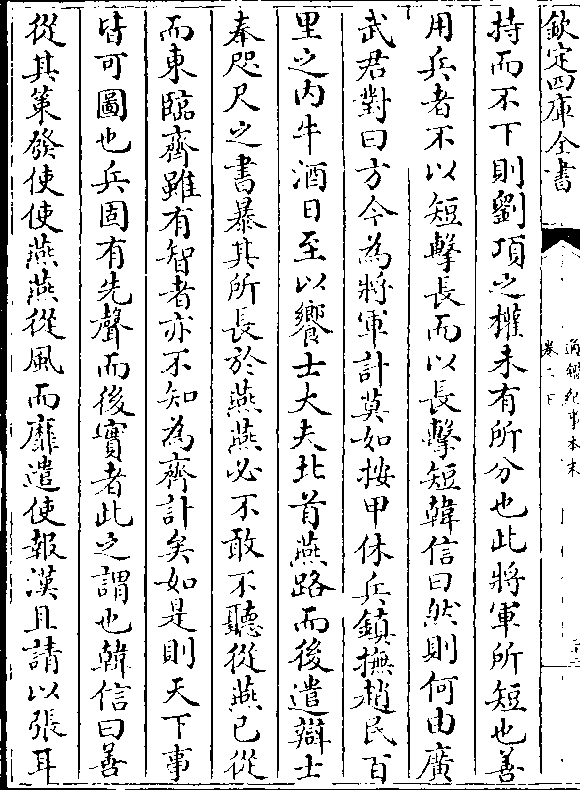 欽定四庫全書
通鑑紀事本末
持而不下則劉項之權未有所分也此將軍所短也善
用兵者不以短擊長而以長擊短韓信曰然則何由廣
武君對曰方今為將軍計莫如按甲休兵鎮撫趙民百
里之内牛酒日至以饗士大夫北首燕路而後遣辯士
奉咫尺之書暴其所長於燕燕必不敢不聽從燕已從
而東臨齊雖有智者亦不知為齊計矣如是則天下事
皆可圖也兵固有先聲而後實者此之謂也韓信曰善
從其策發使使燕燕從風而靡遣使報漢且請以張耳